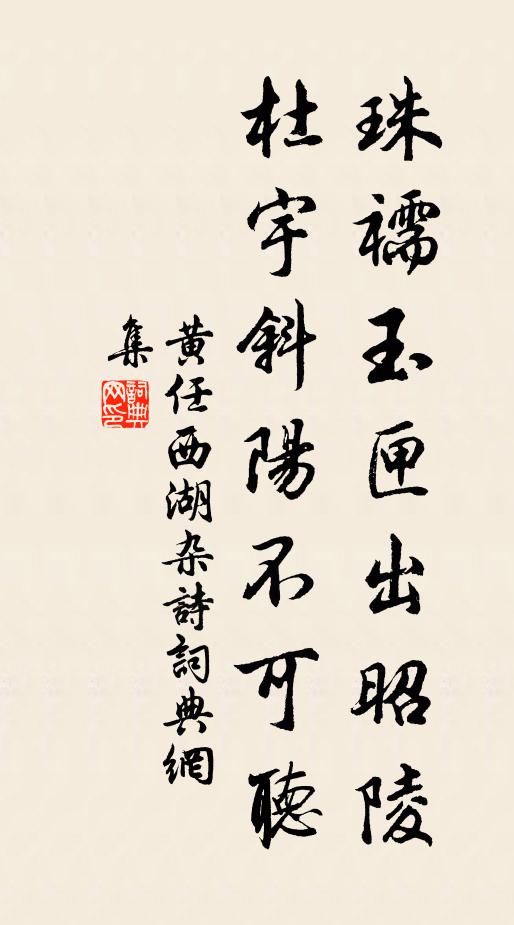 珠襦玉匣出昭陵
杜宇斜陽不可聽
黄任西湖杂詩詞典網
集
詞典网印